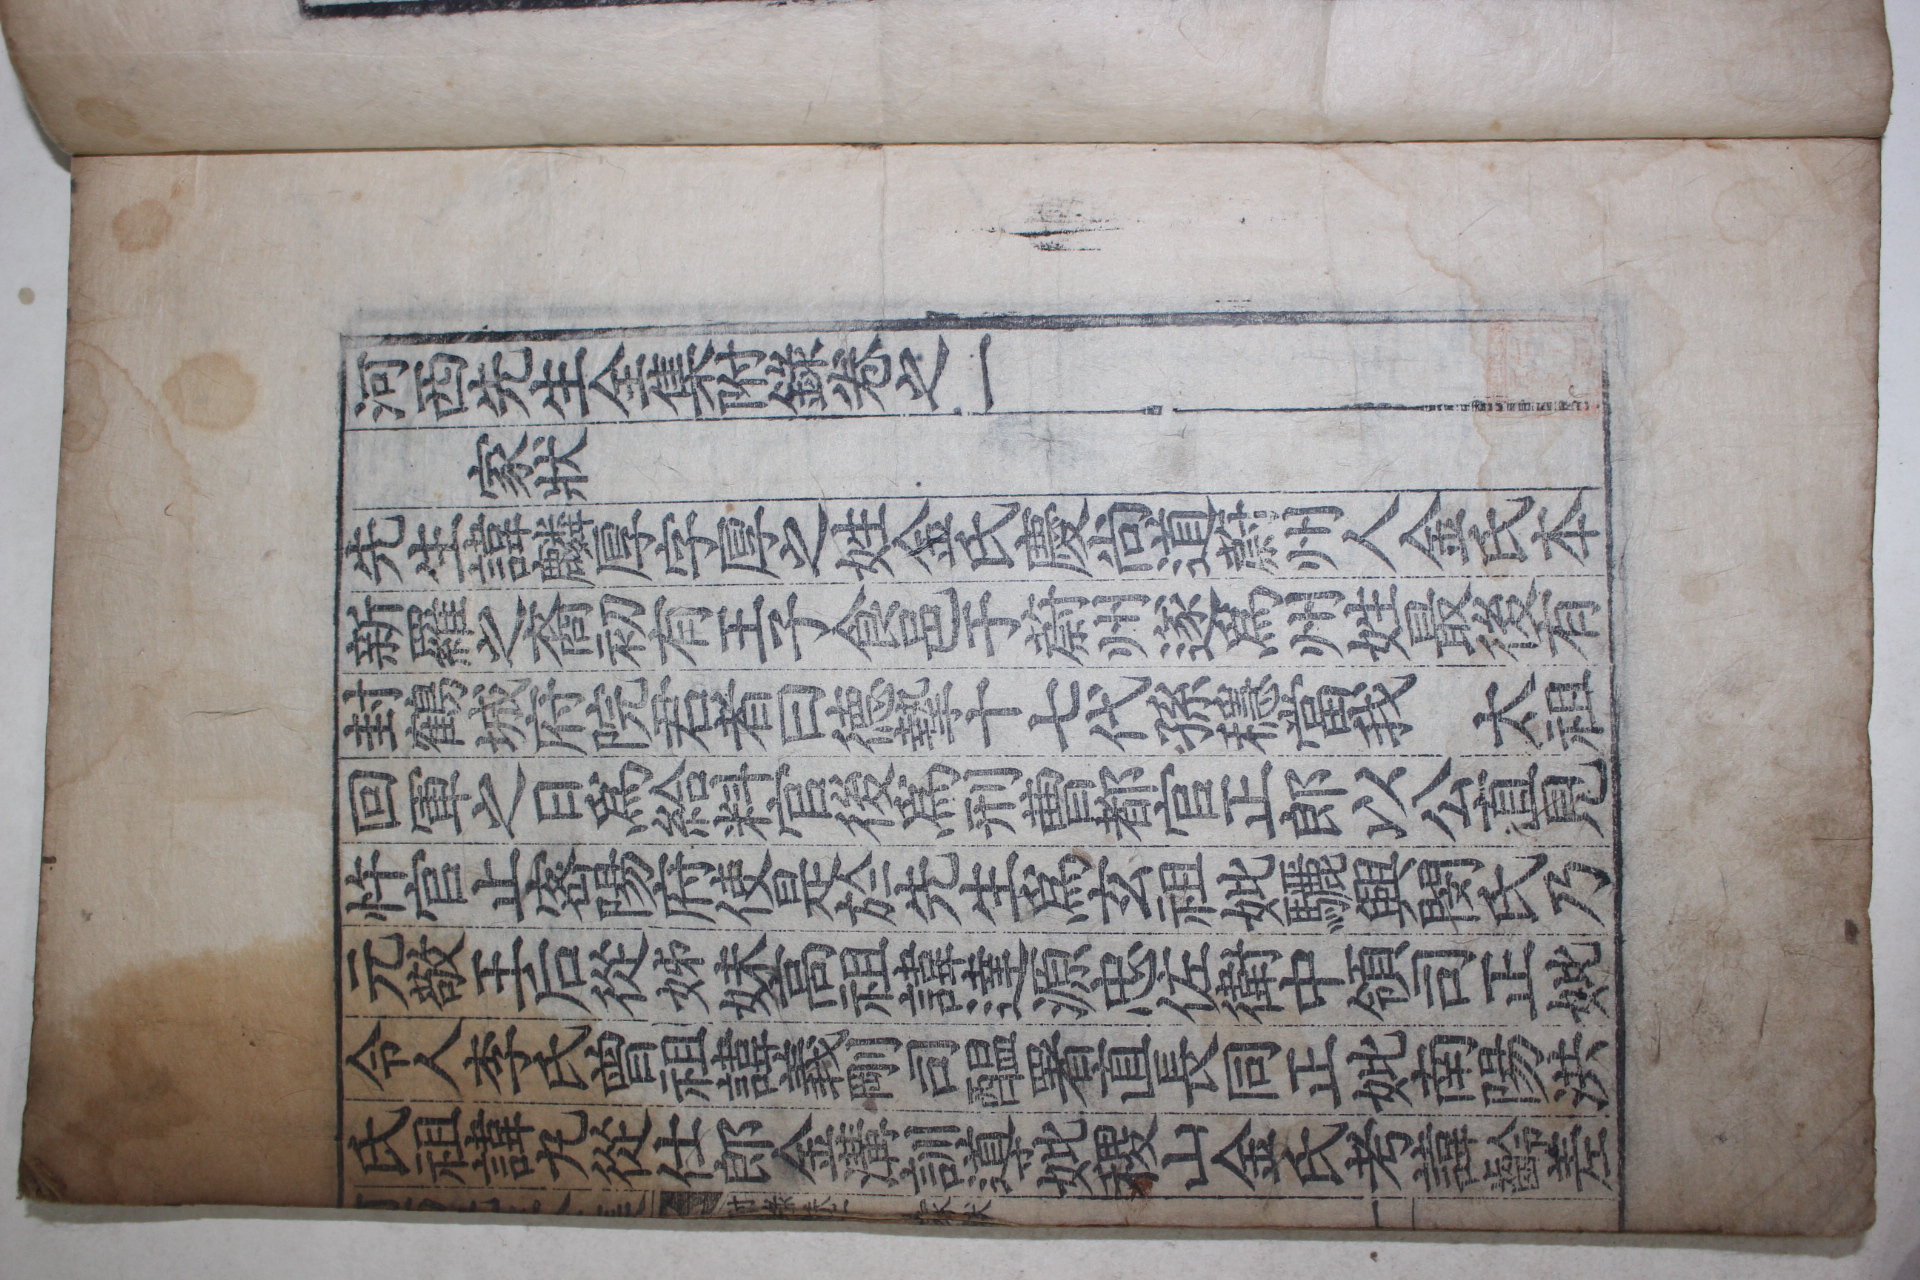 河西先生全集附錄卷之一
家狀
先生諱麟厚字厚之姓金氏慶尙道蔚州人金氏本
新羅之裔初有王子食邑于蔚州遂爲州姓最後有
封鶴城府院君者曰德摯十七代孫穩當我 太祖
回軍之日爲給料官後爲刑曹都官正郎以公直見
忤官止密陽府使是於先生爲玄祖妣驪興閔氏乃
元敬王后從姊妹高祖諱達源忠佐衛中領司正妣
令人李氏曾祖諱義剛司醞署直長同正妣南陽洪
氏祖諱丸從仕郎金溝訓導妣稷山金氏考諱齡差
附錄卷一 家狀 一